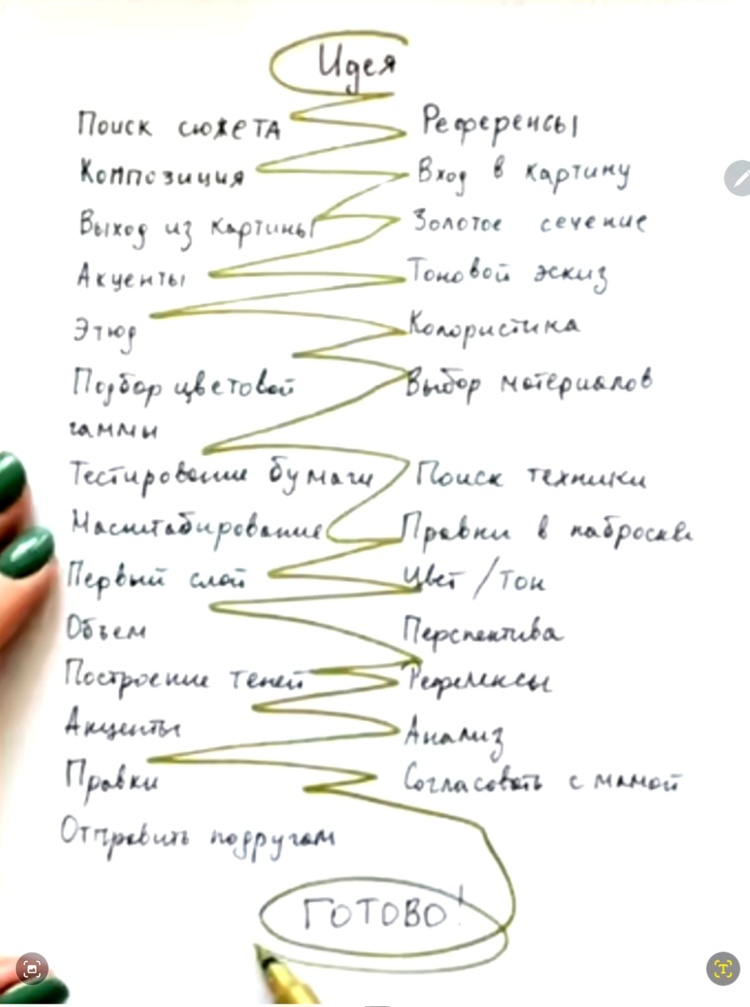 Идея
Поиск сюжета
Референсы
Композиция
Вход в картину
Выход из картины
Золотое сечение
Акценты
Тоновой эскиз
Этюд
Колористика
Подбор цветовой
гаммы
Выбор материалов
Тестирование бумаги
Поиск техники
Масштабирование
Правки в наброске
Первый слой
Цвет / Тон
Объем
Перспектива
Построение теней
Рефлексы
Акценты
Анализ
Правки
Согласовать с мамой
Отправить подругам
ГОТОВО!